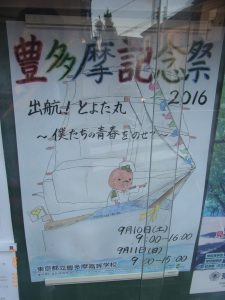 豊多摩記念祭
2016
出航！とよた丸
～僕たちの青春をのせて～
9月10日(土)
9:00-16:00
9月11日(日)
9:00-15:00
東京都立豊多摩高等学校